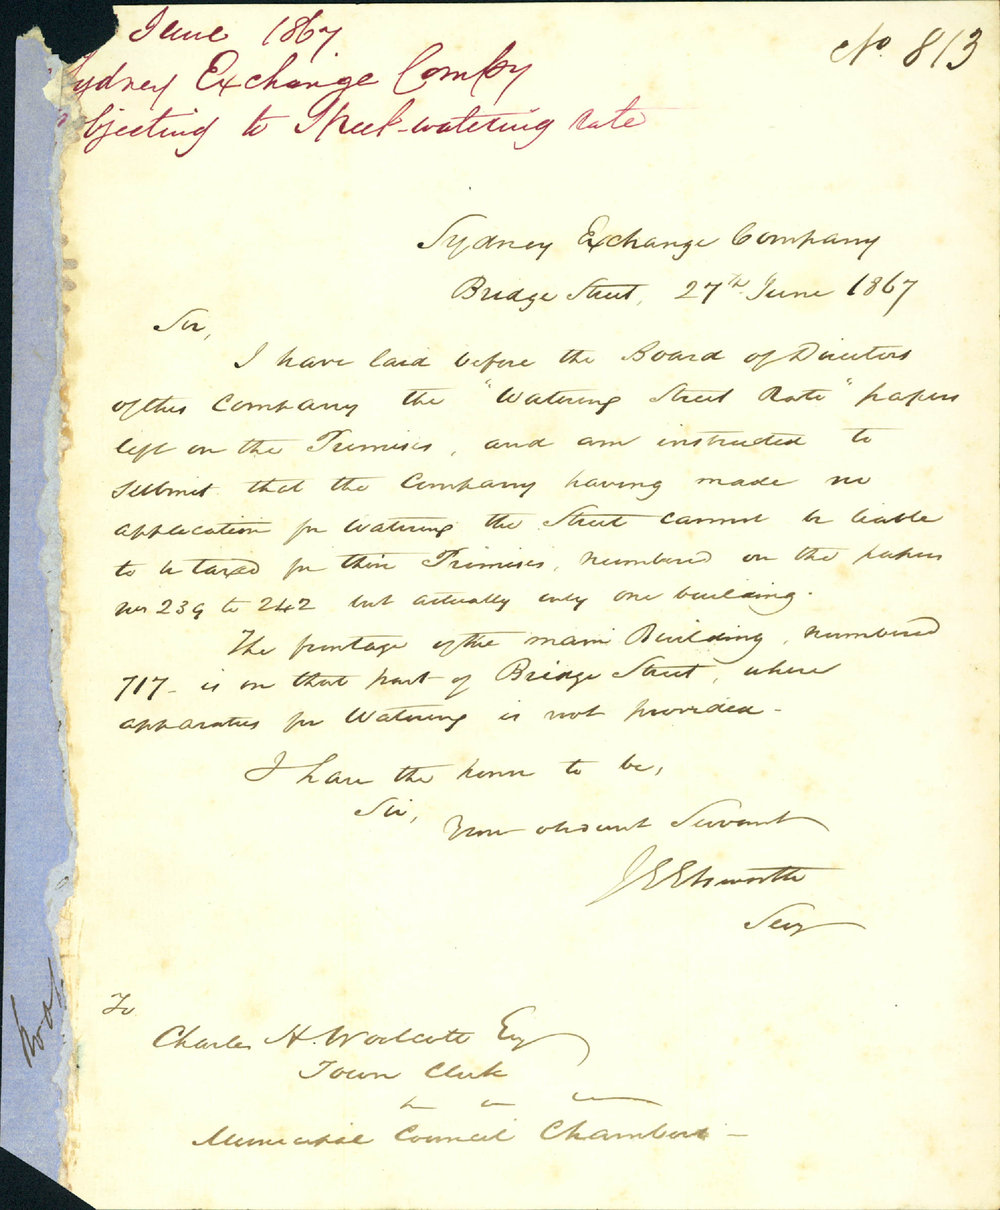 June 1867
Sydney Exchange Compy
objecting to Street-watering rate
No. 813
Sydney Exchange Company
Bridge Street, 27th June 1867
Sir,
I have laid before the Board of Directors
of this Company the "Watering Street Rate" papers
left on the Premises, and am instructed to
submit that the Company having made no
application for Watering the Street cannot be liable
to be taxed for their Premises, numbered on the papers
nos 239 to 242 but actually only one building.
The frontage of the main Building, numbered
717 - is on that part of Bridge Street, where
apparatus for Watering is not provided -
I have the honor to be,
Sir,
Your obedient Servant
J E Elsworth
Secy
To
Charles H. Woolcott Esq
Town Clerk
Municipal Council Chambers -